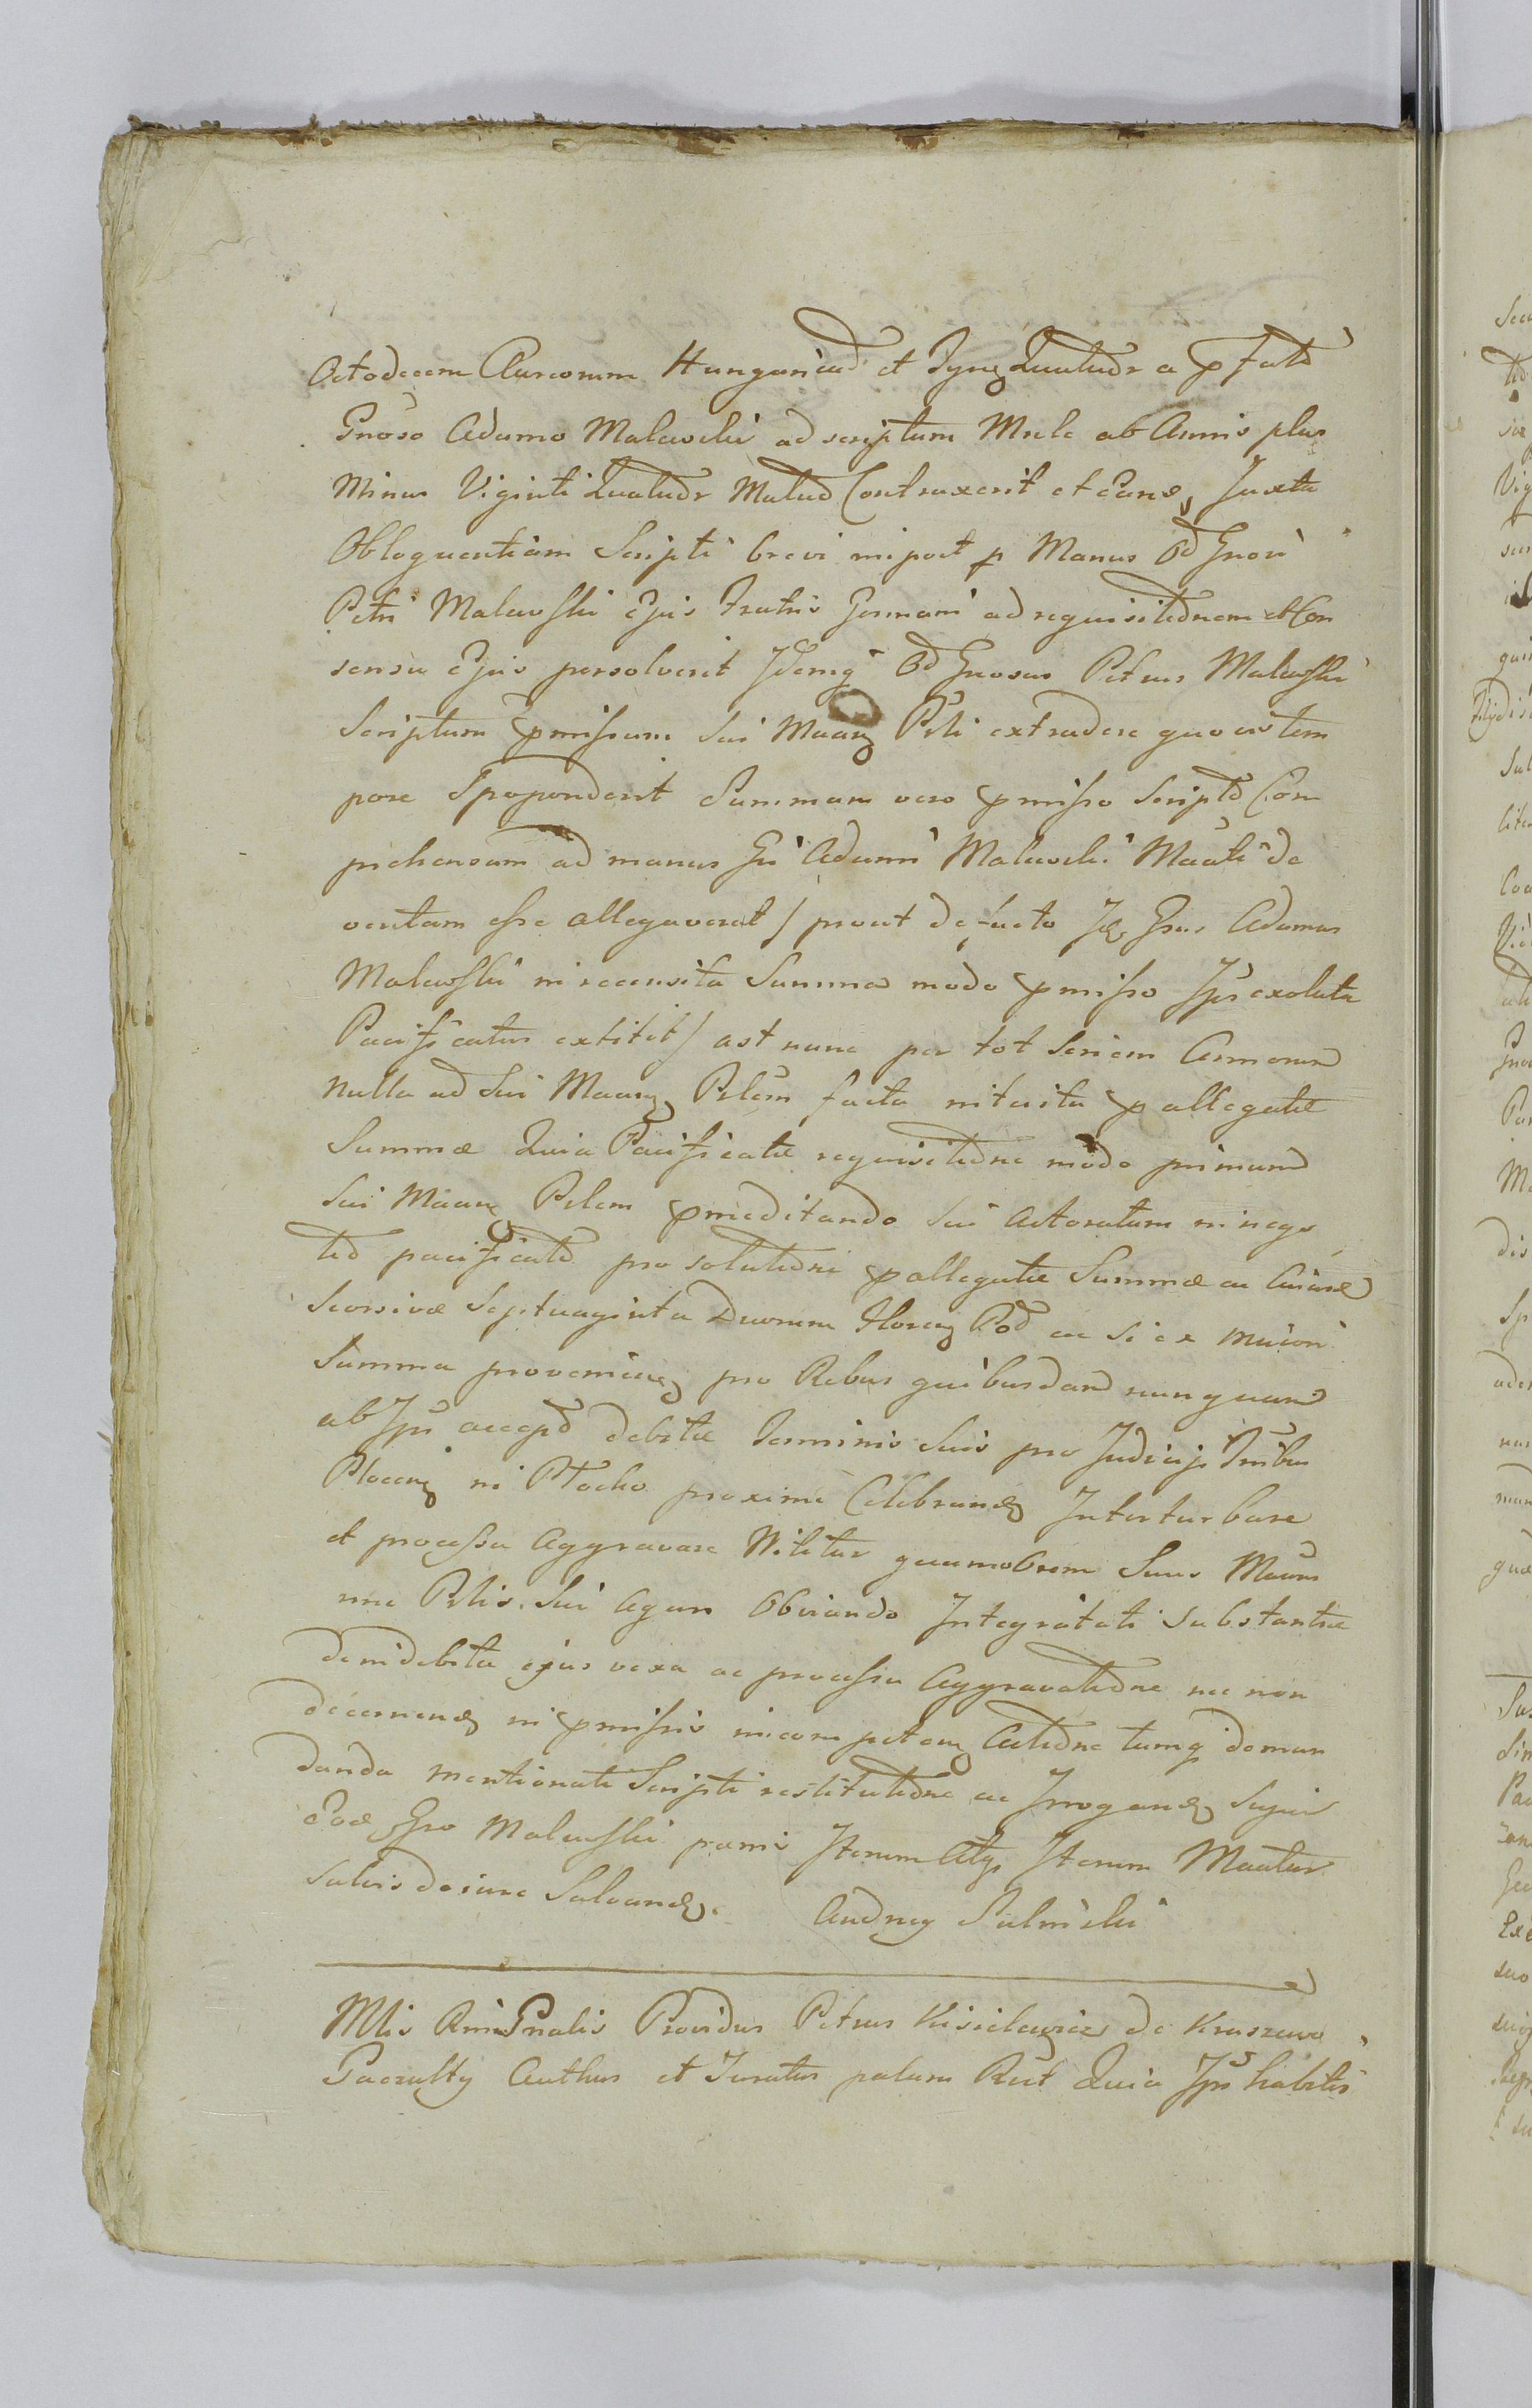 Octodecem Aureorum Hungaricad et Tynf Quatuor a pfato
Gnoso Adamo Malewski ad scriptum Mnle ab Annis plus
Minus Viginti Quatuor Mutuo Contraxerit et eand, Juxta
Obloquentiam Scripti brevi in post p Manus Gd Gnosi
Petri Malewski Ejus Fratris Germani ad requisitionem et Con
sensu Ejus persolverit Idemq Gd Gnosus Petrus Malewski
Scriptum pmissum sui Maang Psti extradere quovis tem
pore Spoponderit Summam vero pmisso Scripto Com
prehensam ad manus Gsi Adami Malewski Maati de
ventam esse allegaverat / prout de facto Id Gsus Adamus
Malewski in recensita Summa modo pmisso Ipsi exoluta
Pacificatus extitit / ast nunc per tot Seriem Annorum
Nulla ad sui Maang Pstem facta intuitu pallegatæ
Summæ Quia Pacificatæ requisitione modo primum
sui Maang Pstem pmeditando sui Actoratum in nego
tio pacificato pro solutione pallegatæ Summæ ac
Seorsivæ Septuaginta Duorum Floreng Pol ac si ex maiori
Summa provenieng pro Rebus quibusdam nunquam
ab Ipso accepto debitæ Terminis suis pro Judicijs Tribus
Ploceng in Płocko proxime Celebrand Inturturbare
et processu Aggravare Nititur quamobrem Suus Maans
nne Pstis sui Agen Obviando Integritati Substantiæ
de indebita ejus vexa ac processu Aggravatione nec non
decernend in pmissis incompeteng Actione tumq deman
danda mentionati Scripti restitutione ac Irrogand super
Eod Gso Malewski pænis Iterum Atq Iterum Maatur
Salvis de iure Salvand. Andrzey Sulmicki
Mlis Rnni Gnalis Providus Petrus Kisielewicz de Kraszewo
Gaczulty Authus et Juratus palam Rect Quia Ips habitis